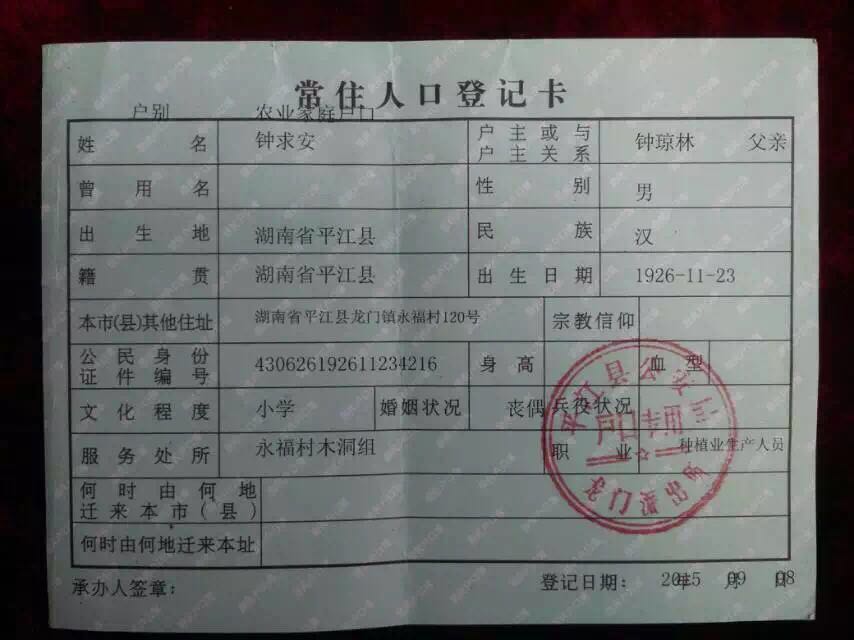 常住人口登记卡
户别 农业家庭户口
姓名 钟求安 户主或与户主关系 钟琼林 父亲
曾用名 性别 男
出生地 湖南省平江县 民族 汉
籍贯 湖南省平江县 出生日期 1926-11-23
本市(县)其他住址 湖南省平江县龙门镇永福村120号 宗教信仰
公民身份证件编号 430626192611234216 身高 血型
文化程度 小学 婚姻状况 丧偶 兵役状况
服务处所 永福村木洞组 职业 种植业生产人员
何时由何地迁来本市(县)
何时由何地迁来本址
承办人签章： 登记日期： 2015年09月08日
平江县公安局
户口专用
龙门派出所